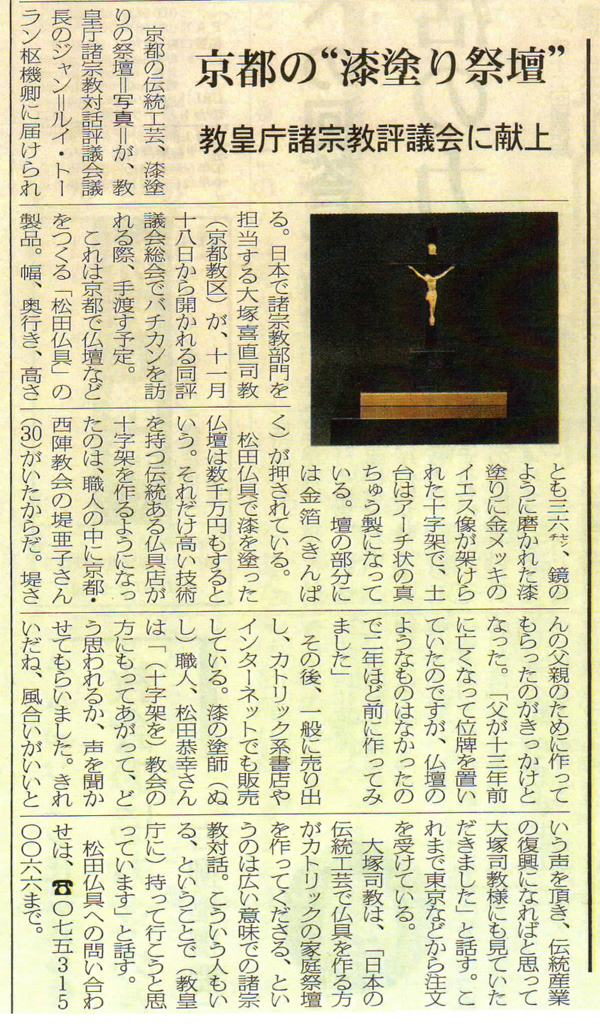 京都の“漆塗り祭壇”
教皇庁諸宗教評議会に献上
京都の伝統工芸、漆塗
りの祭壇＝写真＝が、教
皇庁諸宗教対話評議会議
長のジャン＝ルイ・トー
ラン枢機卿に届けられ
る。日本で諸宗教部門を
担当する大塚喜直司教
（京都教区）が、十一月
十八日から開かれる同評
議会総会でバチカンを訪
れる際、手渡す予定。
これは京都で仏壇など
をつくる「松田仏具」の
製品。幅、奥行き、高さ
とも三六㌢、鏡の
ように磨かれた漆
塗りに金メッキの
イエス像が架けら
れた十字架で、土
台はアーチ状の真
ちゅう製になって
いる。壇の部分に
は金箔（きんぱ
く）が押されている。
松田仏具で漆を塗った
仏壇は数千万円もすると
いう。それだけ高い技術
を持つ伝統ある仏具店が
十字架を作るようになっ
たのは、職人の中に京都・
西陣教会の堤亜子さん
（30）がいたからだ。堤さ
んの父親のために作って
もらったのがきっかけと
なった。「父が十三年前
に亡くなって位牌を置い
ていたのですが、仏壇の
ようなものはなかったの
で二年ほど前に作ってみ
ました」
その後、一般に売り出
し、カトリック系書店や
インターネットでも販売
している。漆の塗師（ぬ
し）職人、松田恭幸さん
は「（十字架を）教会の
方にもってあがって、ど
う思われるか、声を聞か
せてもらいました。きれ
いだね、風合いがいいと
いう声を頂き、伝統産業
の復興になればと思って
大塚司教様にも見ていた
だきました」と話す。こ
れまで東京などから注文
を受けている。
大塚司教は、「日本の
伝統工芸で仏具を作る方
がカトリックの家庭祭壇
を作ってくださる、とい
うのは広い意味での諸宗
教対話。こういう人もい
る、ということで（教皇
庁に）持って行こうと思
っています」と話す。
松田仏具への問い合わ
せは、☎〇七五３１５
〇〇六六まで。